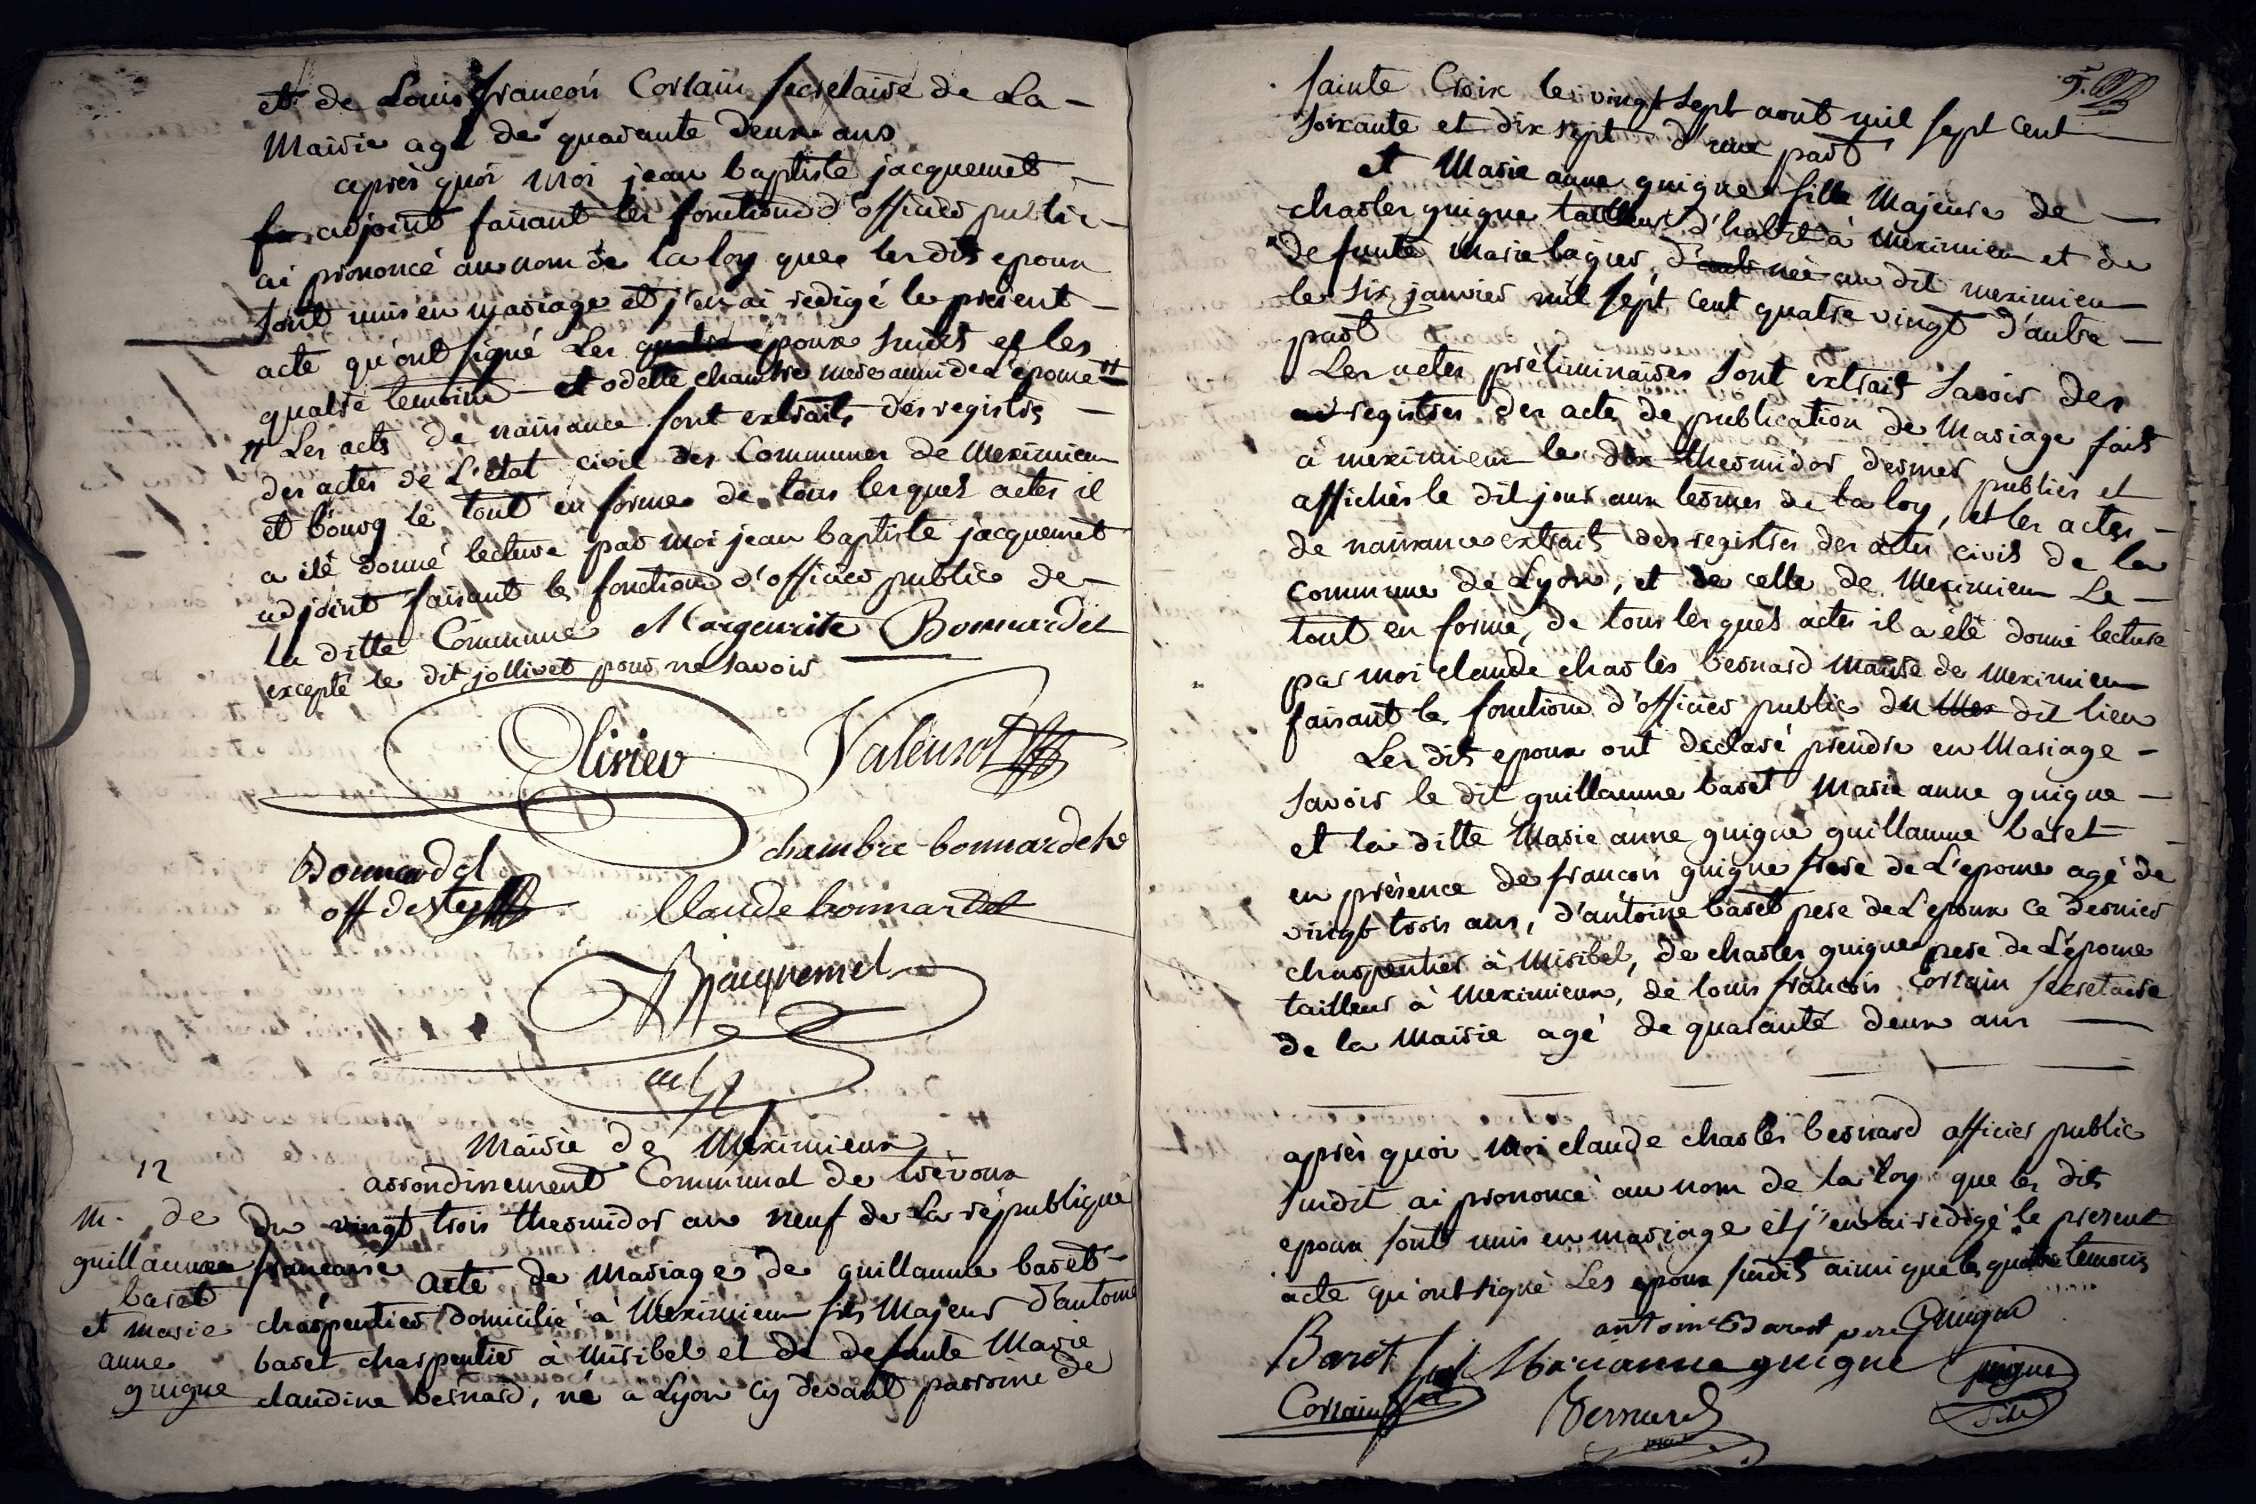 et de Louis françois Corlain secretaire de La
Mairie agé de quarante deux ans
après quoi moi jean baptiste jacquemet
adjoint faisant les fonctions d'officier public
ai prononcé au nom de la loy que les dits epoux
sont unis en mariage et j'en ai redigé le present
acte qu'ont signé Les quatre epoux susdits et les
quatre temoins et odette chambre mere aussi de L'epouse #
# Les acts de naissance sont extraits des registres
des actes de L'état civil des Communes de Meximieu
et bourg le tout en forme de tous lesquels actes il
a été donné lecture par moi jean baptiste jacquemet
adjoint faisant les fonctions d'officier public de
la ditte Commune Marguerite Bonnardet
excepté le dit jollivet pour ne savoir
Olivier Valensot
chambre bonnardet
Bonnardel
off de Claude bonnardet
Bjacquemet
adj
Mairie de Meximieux
arrondissement Communal de trévoux
12
M. de
guillaume
baret
et marie
anne
guigue
du vingt trois thermidor an neuf de La république
francaise Acte de Mariage de guillaume baret
charpentier domicilié à Meximieu fils Majeur d'antoine
baret charpentier à Miribel et de defunte Marie
claudine bernard, né a Lyon cy devant parroisse de
9.e
sainte Croix le vingt sept aout mil sept cent
soixante et dix sept d'une part
et Marie anne guigue fille Majeure de
charles guigue tailleur d'habit à Meximieu et de
defunte Marie bagier, née au dit meximieu
le six janvier mil sept cent quatre vingt d'autre
part
Les actes préliminaires sont extrait savoir des
registres des actes de publication de Mariage fait
à meximieu le dix thermidor dernier publiés et
affichés le dit jour aux termes de la loy, et les actes
de naissance extrait des registres des actes civils de la
commune de Lyon, et de celle de Meximieu Le
tout en forme, de tous lesquels actes il a été donné lecture
par moi claude charles bernard Maire de Meximieu
faisant les fonctions d'officier public du Mex dit lieu
Les dits epoux ont declaré prendre en Mariage
savoir le dit guillaume baret Marie anne guigue
et la ditte Marie anne guigue guillaume baret
en présence de francois guigue frere de L'epouse agé de
vingt trois ans, d'antoine baret pere de L'epoux ce dernier
charpentier à Miribel, de charles guigue pere de L'épouse
tailleur à Meximieux, de louis francois Corlain secretaire
de la Mairie agé de quarante deux ans
après quoi Moi claude charles bernard officier public
susdit ai prononcé au nom de la loy que les dits
epoux sont unis en mariage et j'en ai rédigé le present
acte qu'ont signé Les epoux susdits ainsi que les quatre temoins
antoine Baret pere Guigue
Baret fils Marianne guigue guigue
Corlain Bernard fils
maire